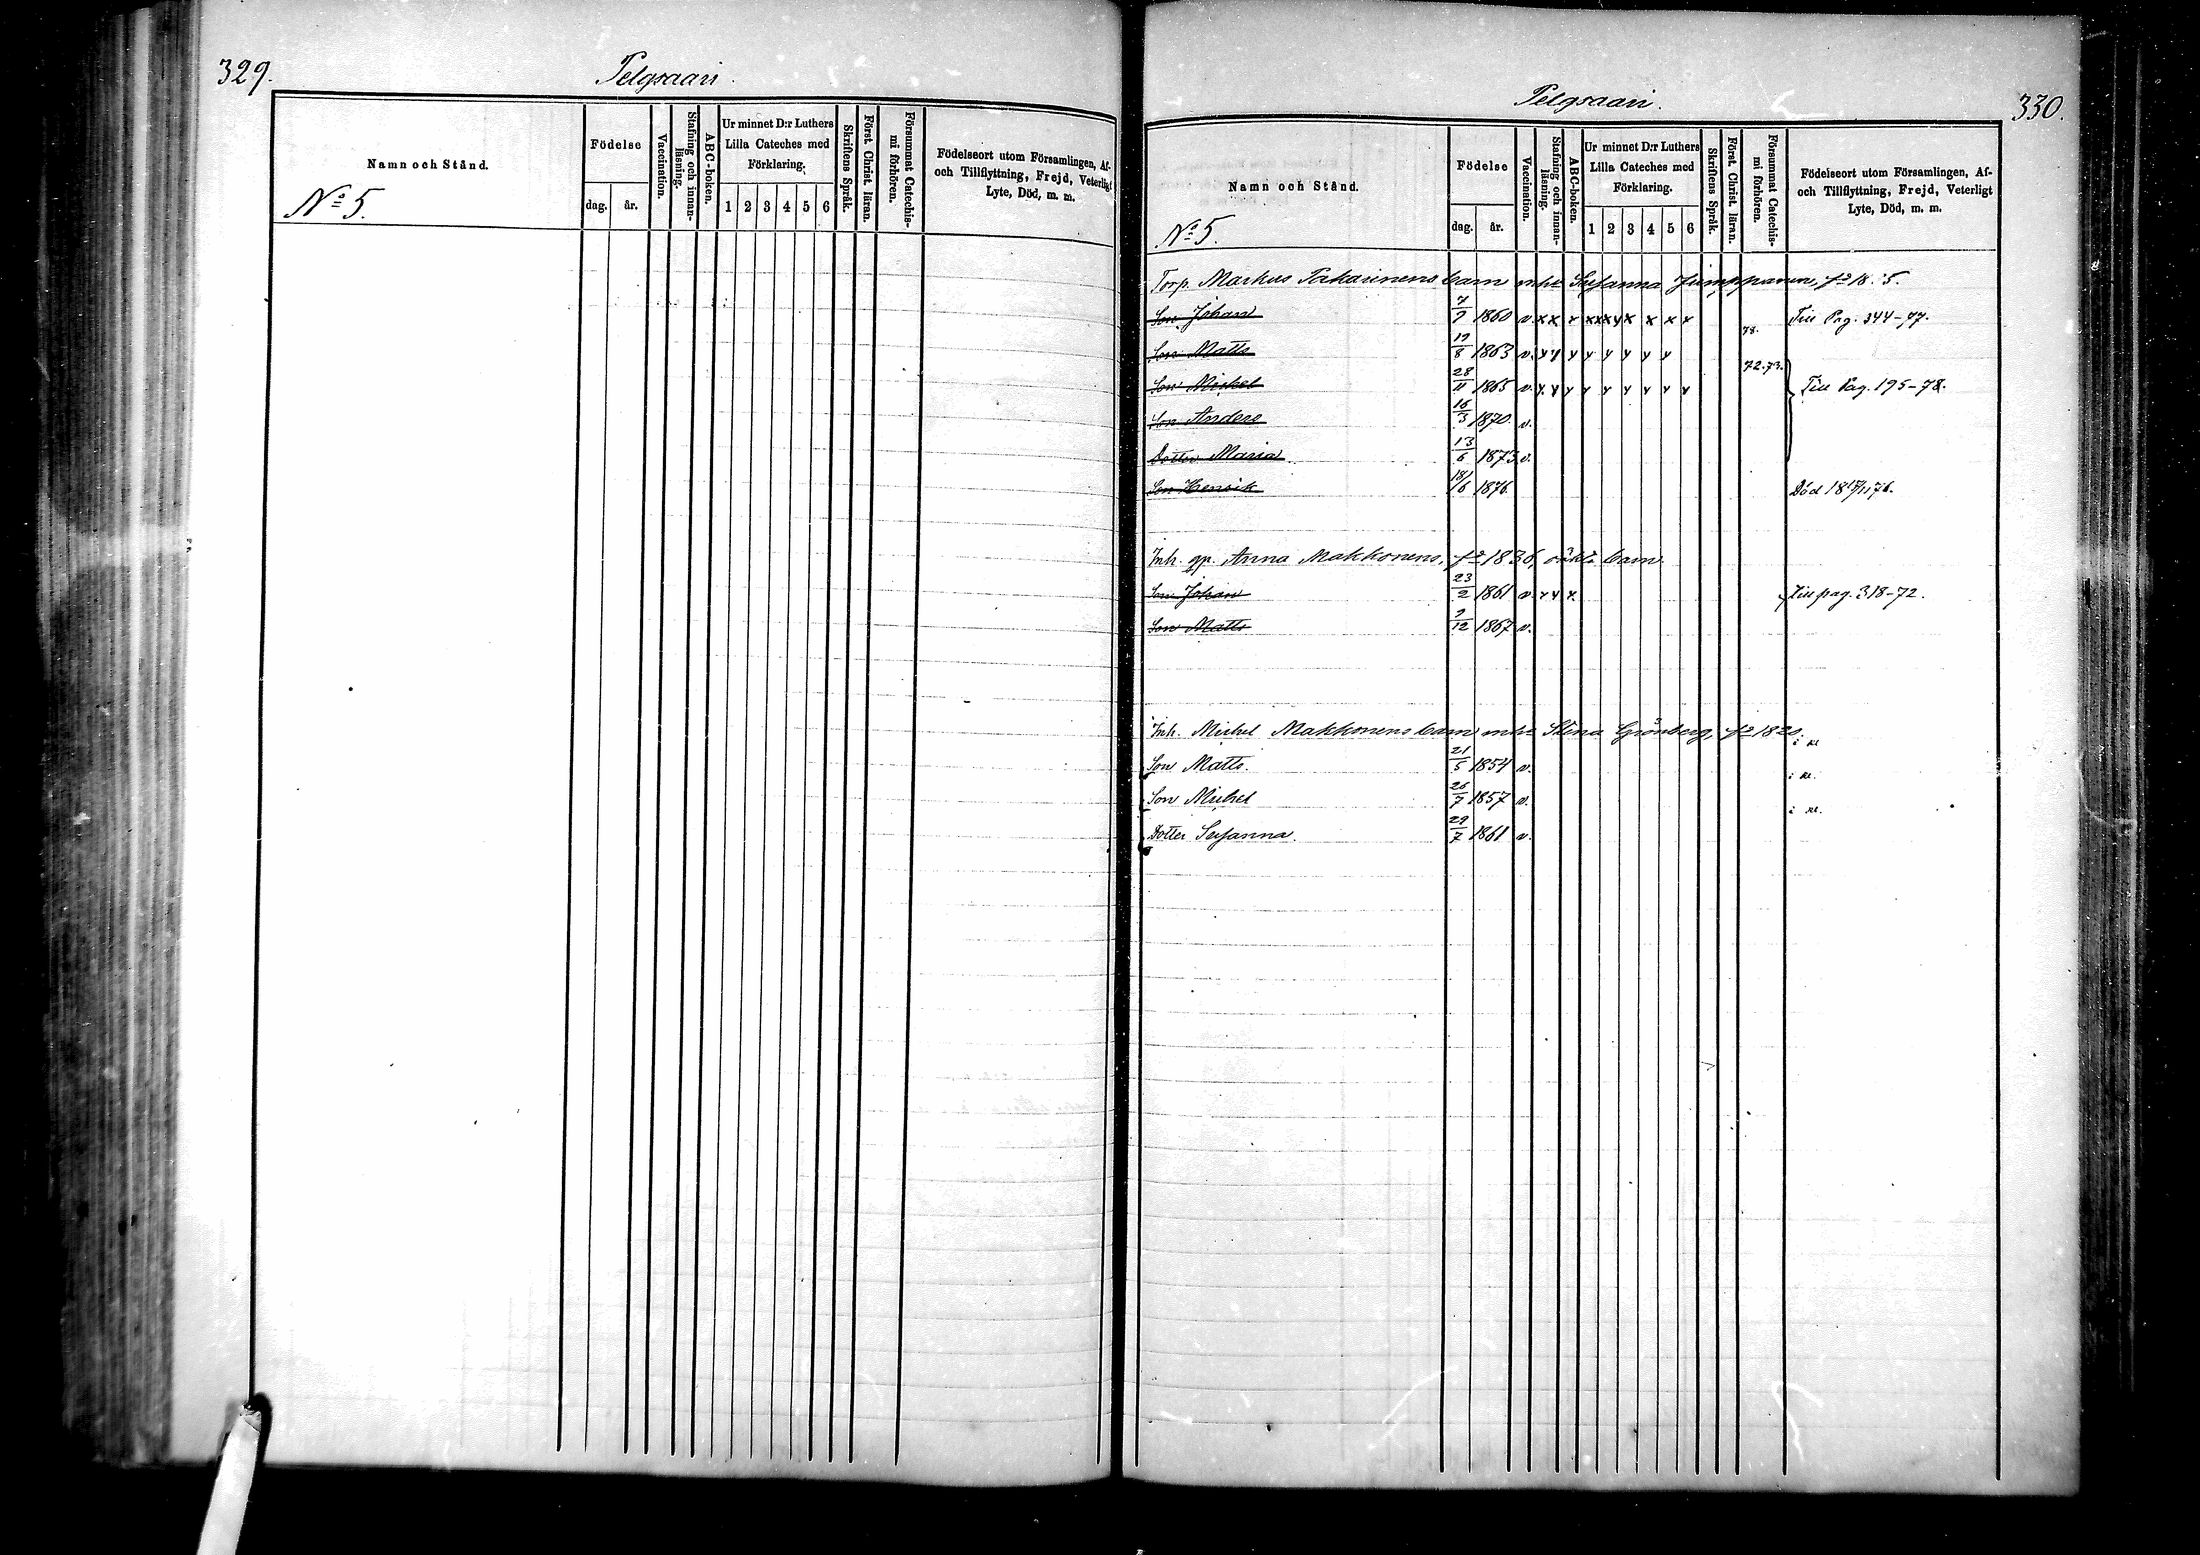 329.
Pelgsaari.
Namn och Stånd.
No 5.
Födelse
dag.
år.
Vaccination.
Stafning och innanläsning.
ABC-boken.
Ur minnet D:r Luthers
Lilla Cateches med
Förklaring.
1 2 3 4 5 6
Skriftens Språk.
Först. Christ. läran.
Försummat Catechismi förhören.
Födelseort utom Församlingen, Af-
och Tillflyttning, Frejd, Veterligt
Lyte, Död, m. m.
Pelgsaari.
330.
Namn och Stånd.
No 5.
Födelse
dag.
år.
Vaccination.
Stafning och innanläsning.
ABC-boken.
Ur minnet D:r Luthers
Lilla Cateches med
Förklaring.
1 2 3 4 5 6
Skriftens Språk.
Först. Christ. läran.
Försummat Catechismi förhören.
Födelseort utom Församlingen, Af-
och Tillflyttning, Frejd, Veterligt
Lyte, Död, m. m.
Torp. Markus Pakarinens barn mhu Susanna Jumppanen,
Son Johan 7/9 1860 v. x x x x x x y x x x x Till Pag. 344-77.
Son Matts 19/8 1863 v. y y y y y y y y 78.
Son Michel 28/11 1865 v. y y y y y y y y y 72.73. Till Pag. 195-78.
Son Anders 16/3 1870. v.
Dotter Maria 13/6 1873 v.
Son Henrik 18/6 1876. Död 18 76.
Inh. qp. Anna Makkonens, fd 1836, oäkta barn
Son Johan 23/2 1861 v. y y y. Till pag. 318-72.
Son Matts 9/12 1867 v.
Inh. Michel Makkonens barn mhu Stina Grönberg, fd 1820
Son Matts. 21/5 1854 v. i kl
Son Michel 26/7 1857 v. i kl.
Dotter Susanna. 29/7 1861 v. i kl.